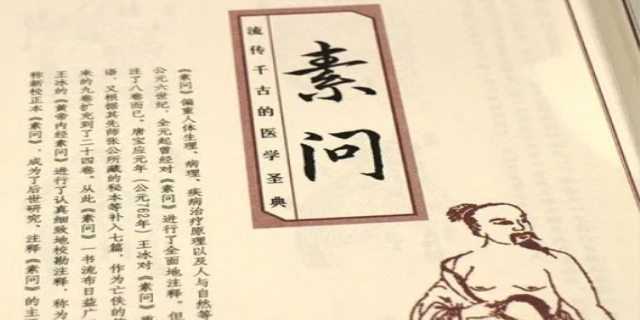 素问
流传千古的医学圣典
《素问》偏重人体生理、病理、疾病治疗原理以及人与自然等
公元六世纪，全元起曾经对《素问》进行了全面地注释。但
注了八卷而已。唐宝应元年（公元762年）王冰对《素问》重
语，又根据其先师张公所藏的秘本等补入七篇，作为亡佚的
来的九卷扩充到了二十四卷。从此《素问》一书流布日益广
王冰的《黄帝内经素问》进行了认真细致地校勘注释，称为
称新校正本《素问》，成为了后世研究、注释《素问》的主